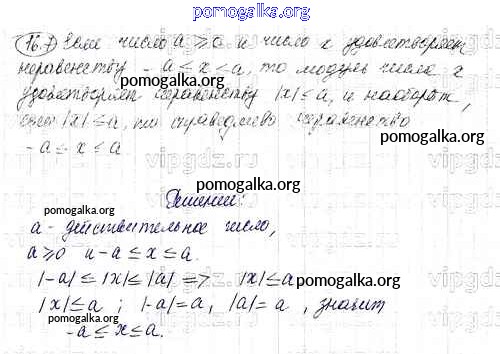 pomogalka.org
16.7) Если число a ⩾ 0 и число x удовлетворяет
неравенству -a ≤ x ≤ a, то модуль числа x
pomogalka.org
удовлетворяет неравенству |x| ≤ a, и наоборот,
если |x| ≤ a, то справедливо неравенство
-a ≤ x ≤ a
vipgdz.ru
pomogalka.org
Решение:
pomogalka.org
a - действительное число,
a ⩾ 0 и -a ≤ x ≤ a.
|-a| ≤ |x| ≤ |a| => |x| ≤ a
pomogalka.org
|x| ≤ a ; |-a| = a, |a| = a, значит
-a ≤ x ≤ a.
pomogalka.org